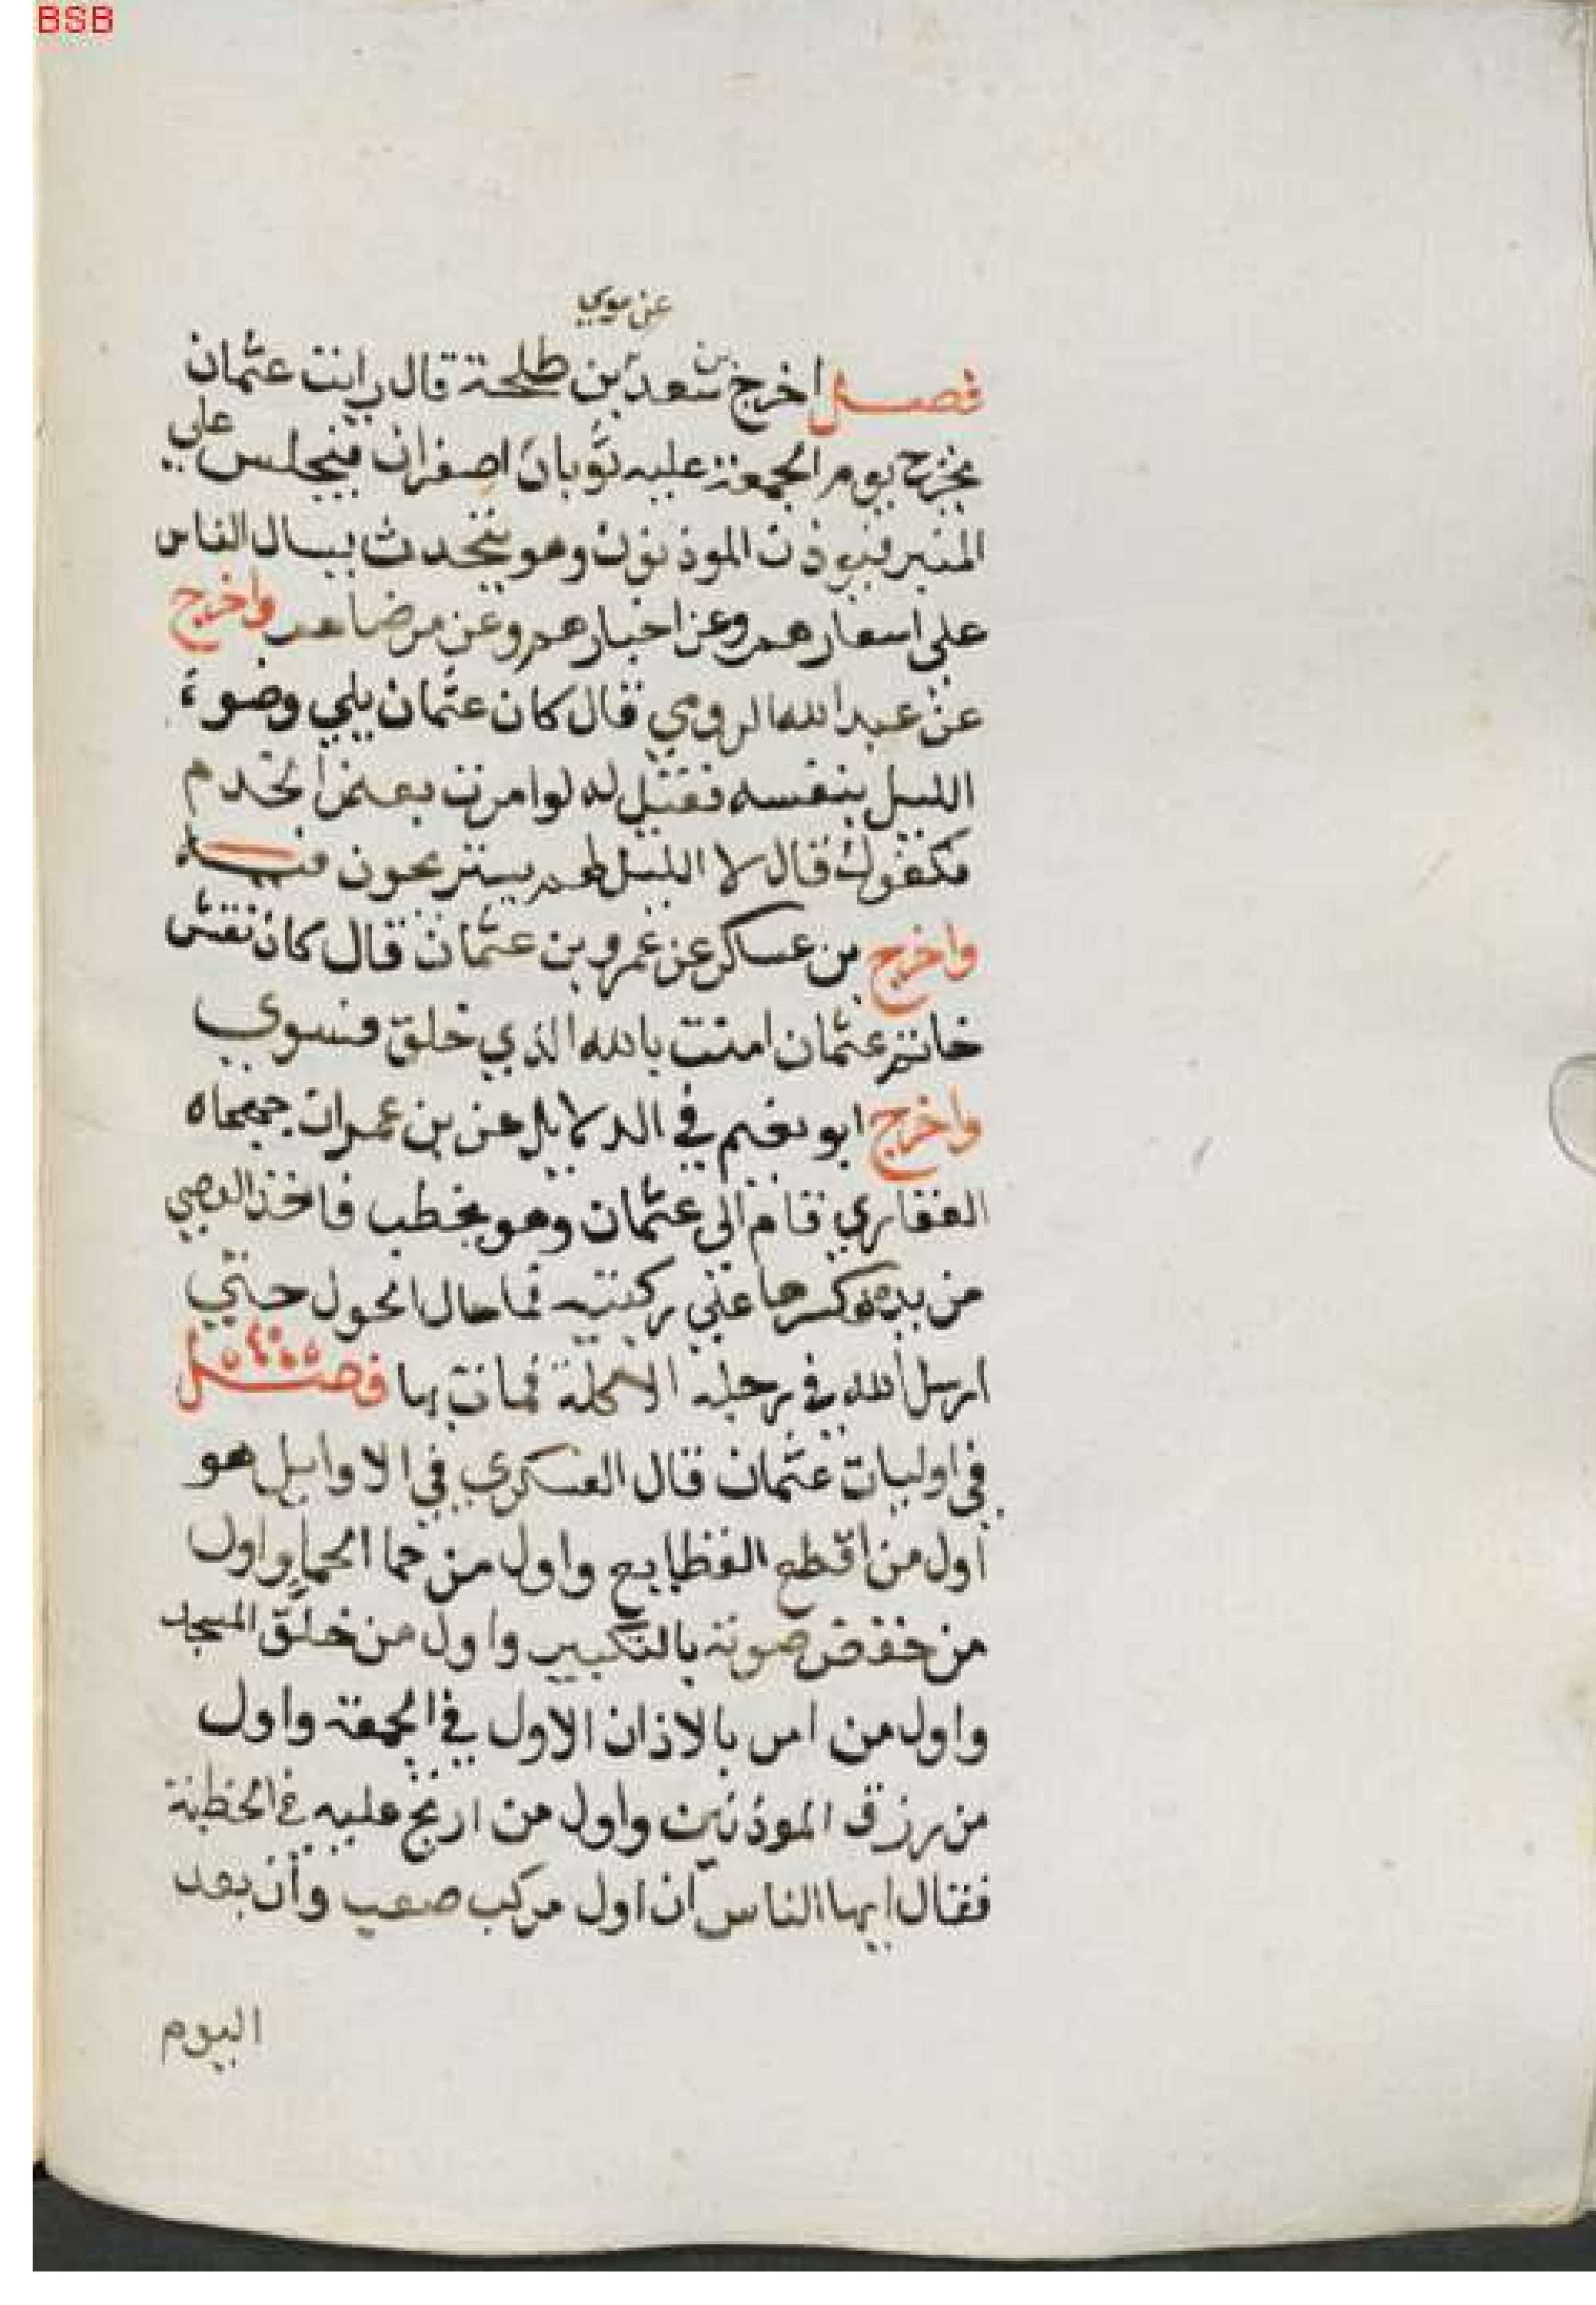 BSB
عن موسي
فصل اخرج بن سعد بن طلحة قال رايت عثمان
يخرج يوم الجمعة عليه ثوبان اصفران فيجلس علي
المنبر فيوذن الموذنون وهو يتحدث يسال الناس
علي اسعارهم وعن اخبارهم وعن مرضاهم واخرج
عن عبد الله الرومي قال كان عثمان يلي وضوء
الليل بنفسه فقيل له لو امرت بعض الخدم
فكفوك قال لا الليل لهم يستريحون فيه
واخرج بن عساكر عن عمرو بن عثمان قال كان نقش
خاتم عثمان امنت بالله الذي خلق فسوي
واخرج ابو نعيم في الدلايل عن بن عمران جهجاه
الغفاري قام الي عثمان وهو يخطب فاخذ العصي
من يده فكسرها علي ركبتيه فما حال الحول حتي
ارسل الله في رجله الاكلة فمات بها فصل
في اوليات عثمان قال العسكري في الاوايل هو
اول من اقطع القطايع واول من حما الحما واول
من خفض صوته بالتكبير واول من خلّق المسجد
واول من امر بالاذان الاول في الجمعة واول
من رزق الموذنين واول من ارتج عليه في الخطبة
فقال ايها الناس ان اول مركب صعب وان بعد
اليوم